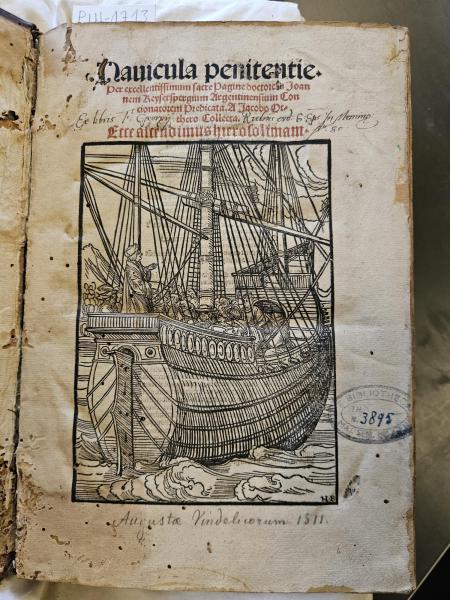 PIII-1713
Nauicula penitentie.
Per excellentissimum sacre Pagine doctorem Joan
nem Keyserspergium Argentinensium Con
cionatorem Predicata. A Jacobo Ot-
Ex libris
thero Collecta.
Ecce ascendimus hierosolimam.
BIBLIOTHE
N 3895
HB
Augustæ Vindelicorum 1511.